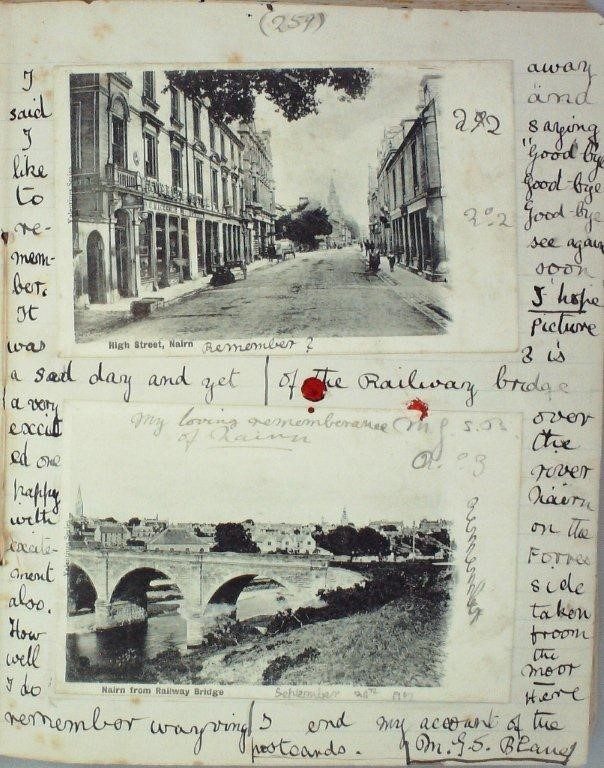 (259)
I
said
I
like
to
re-
mem-
ber.
It
was
a sad day and yet
a very
excit
ed one
happy
with
excite-
ment
also.
How
well
I do
remember wayving
away
and
saying
"Good bye
Good-bye
Good-bye
see again
soon
I hope
Picture
3 is
of the Railway bridge
over
the
rover
Nairn
on the
Forres
side
taken
froom
the
moor
Here
I end my account of the
postcards. M.G.S. Blane
No 2
No 2
High Street, Nairn Remember?
My loving rememberance
of Nairn
No 3
Remember
Nairn from Railway Bridge September